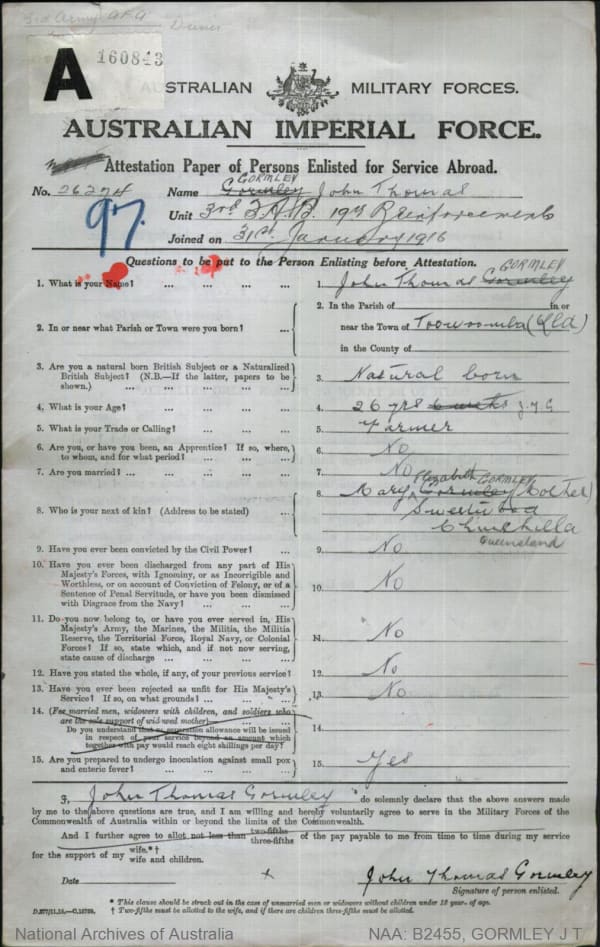 3rd Army AFA
Driver
A
160843
AUSTRALIAN MILITARY FORCES.
AUSTRALIAN IMPERIAL FORCE.
Attestation Paper of Persons Enlisted for Service Abroad.
GORMLEY
No. 26274 Name Gormley John Thomas
97. Unit 3rd F.A.B. 19th Reinforcements
Joined on 31st January 1916
Questions to be put to the Person Enlisting before Attestation.
GORMLEY
1. What is your Name? ... ... ... ... 1. John Thomas Gormley
2. In the Parish of in or
2. In or near what Parish or Town were you born? ... near the Town of Toowoomba (Qld)
in the County of
3. Are you a natural born British Subject or a Naturalized
British Subject? (N.B.—If the latter, papers to be
shown.) ... ... ... ... ... 3. Natural born
4. What is your Age? ... ... ... ... 4. 26 yrs 6 weeks J.T.G
5. What is your Trade or Calling? ... ... ... 5. Farmer
6. Are you, or have you been, an Apprentice? If so, where,
to whom, and for what period? ... ... ... 6. No
7. Are you married? ... ... ... ... ... 7. No
Elizabeth GORMLEY
8. Mary Gormley (Mother)
8. Who is your next of kin? (Address to be stated) ...
Chinchilla
Queensland
9. Have you ever been convicted by the Civil Power? ... 9. No
10. Have you ever been discharged from any part of His
Majesty's Forces, with Ignominy, or as Incorrigible and
Worthless, or on account of Conviction of Felony, or of a
Sentence of Penal Servitude, or have you been dismissed
with Disgrace from the Navy? ... ... ... 10. No
11. Do you now belong to, or have you ever served in, His
Majesty's Army, the Marines, the Militia, the Militia
Reserve, the Territorial Force, Royal Navy, or Colonial
Forces? If so, state which, and if not now serving,
state cause of discharge ... ... ... ... 11. No
12. Have you stated the whole, if any, of your previous service? 12. No
13. Have you ever been rejected as unfit for His Majesty's
Service? If so, on what grounds? ... ... ... 13. No
14. (For married men, widowers with children, and soldiers who
are the sole support of widowed mother)— ... ...
Do you understand that no separation allowance will be issued
in respect of your service beyond an amount which
together with pay would reach eight shillings per day? 14.
15. Are you prepared to undergo inoculation against small pox
and enteric fever? ... ... ... ... 15. Yes
I, John Thomas Gormley do solemnly declare that the above answers made
by me to the above questions are true, and I am willing and hereby voluntarily agree to serve in the Military Forces of the
Commonwealth of Australia within or beyond the limits of the Commonwealth.
And I further agree to allot not less than two-fifths three-fifths of the pay payable to me from time to time during my service
for the support of my wife.*† wife and children.
Date x John Thomas Gormley
Signature of person enlisted.
* This clause should be struck out in the case of unmarried men or widowers without children under 18 year of age.
† Two-fifths must be allotted to the wife, and if there are children three-fifths must be allotted.
National Archives of Australia NAA: B2455, GORMLEY J T